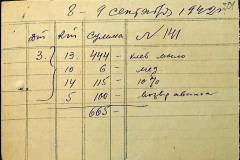 8 - 9 сентября 1942 г.
Дт Кт Сумма № 141
3. 13. 444 - хлеб мыло
10 6 - мед
14 115 - 10%
5 100 - возвр аванса
665 -